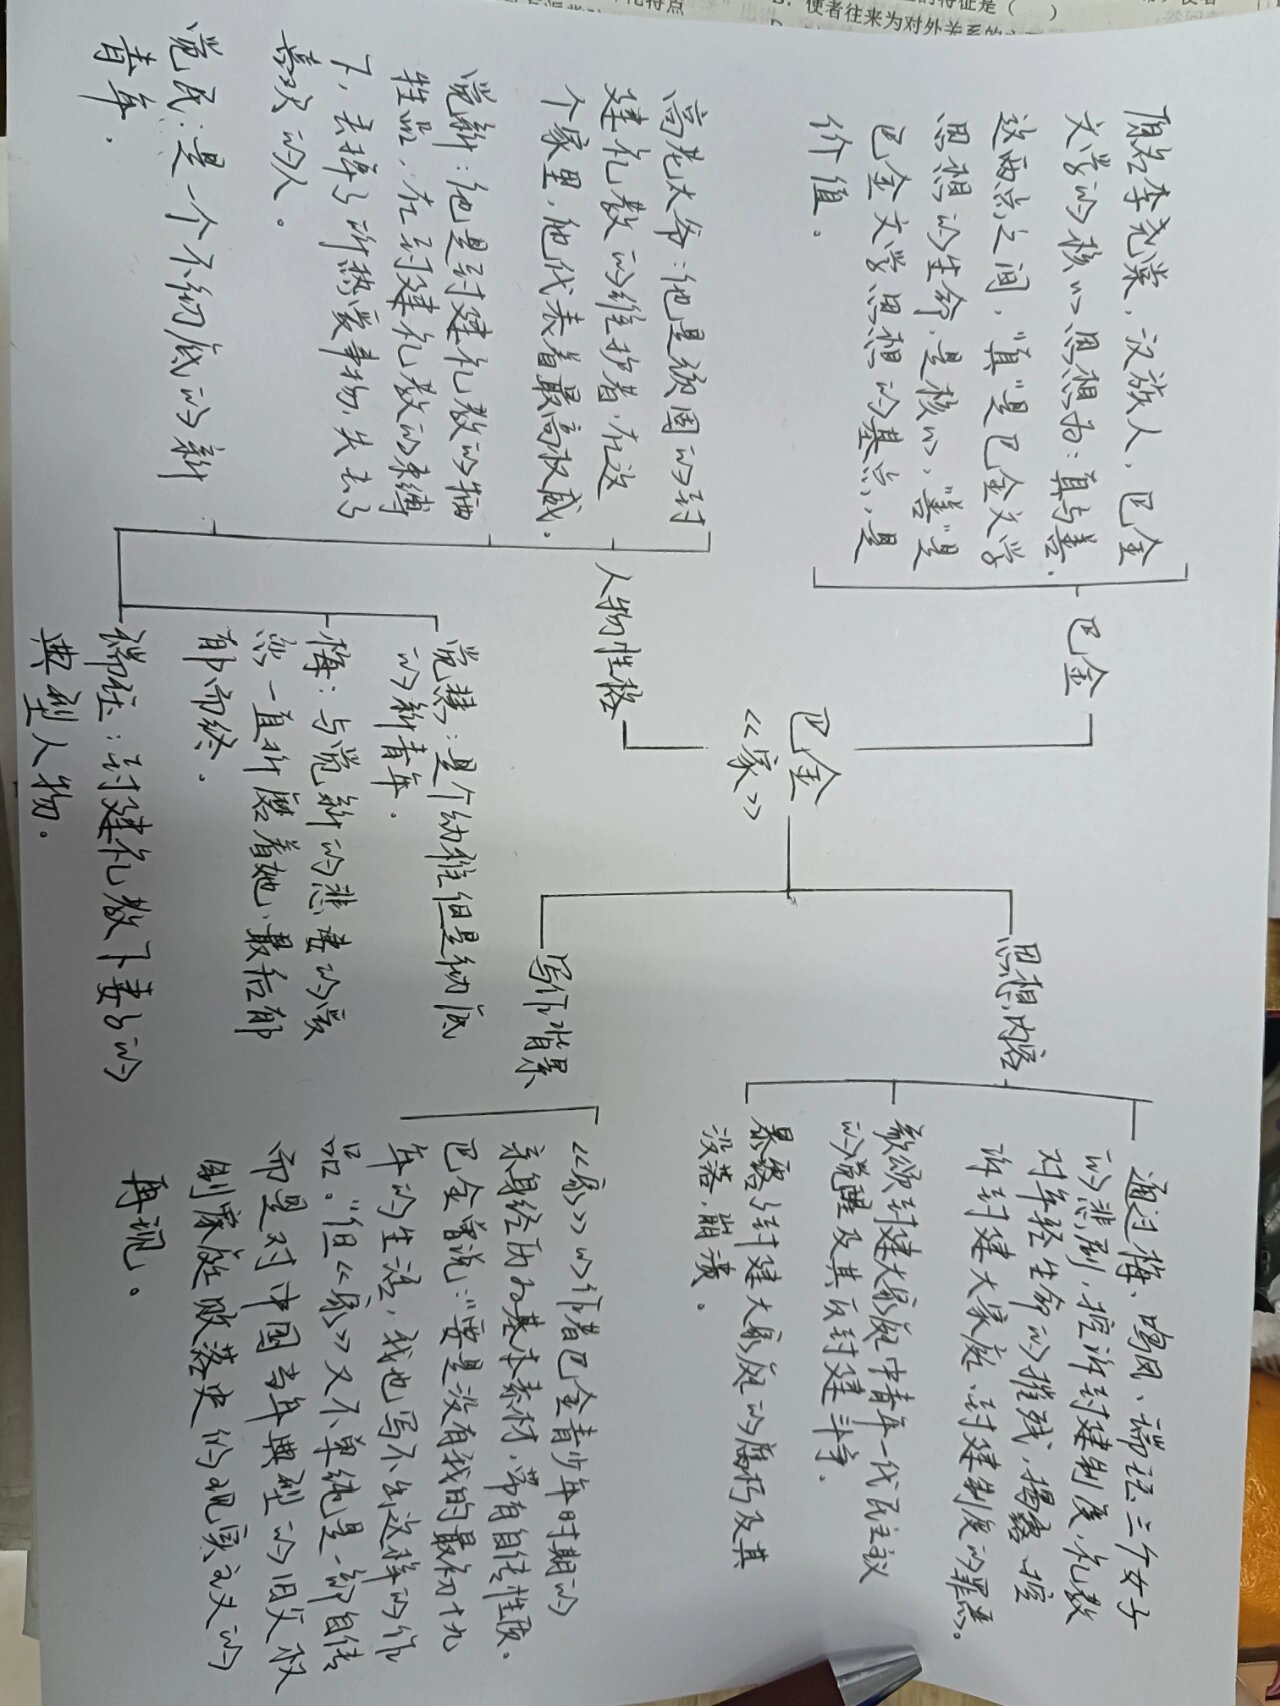 巴金
《家》
巴金
原名李尧棠，汉族人，巴金
文学的核心思想为：真与善.
这两点之间，"真"是巴金文学
思想的生命，是核心，"善"是
巴金文学思想的基点，是
价值.
人物性格
高老太爷：他是顽固的封
建礼教的维护者，在这
个家里，他代表着最高权威.
觉新：他是封建礼教的牺
牲品，在封建礼教的束缚
下，去掉了所热爱事物，失去了
喜欢的人.
觉民：是一个不彻底的新
青年.
觉慧：是个幼稚但是彻底
的新青年.
梅：与觉新的悲凄的爱
恋一直折磨着她，最后郁
郁而终.
瑞珏：封建礼教下妻子的
典型人物.
思想内容
通过梅、鸣凤、瑞珏三个女子
的悲剧，控诉封建制度、礼教
对年轻生命的摧残，揭露、控
诉封建大家庭、封建制度的罪恶.
歌颂封建大家庭中青年一代民主议
的觉醒及其反封建斗争.
暴露了封建大家庭的腐朽及其
没落、崩溃.
写作背景
《家》的作者巴金青少年时期的
亲身经历为基本素材，带有自传性质.
巴金曾说："要是没有我的最初十九
年的生活，我也写不出这样的作
品."但《家》又不单纯是一部自传
而是对中国当年典型的旧父权
制家庭败落史的现实主义的
再现.
化特点
的特征是（ ）
使者往来为对外关系的